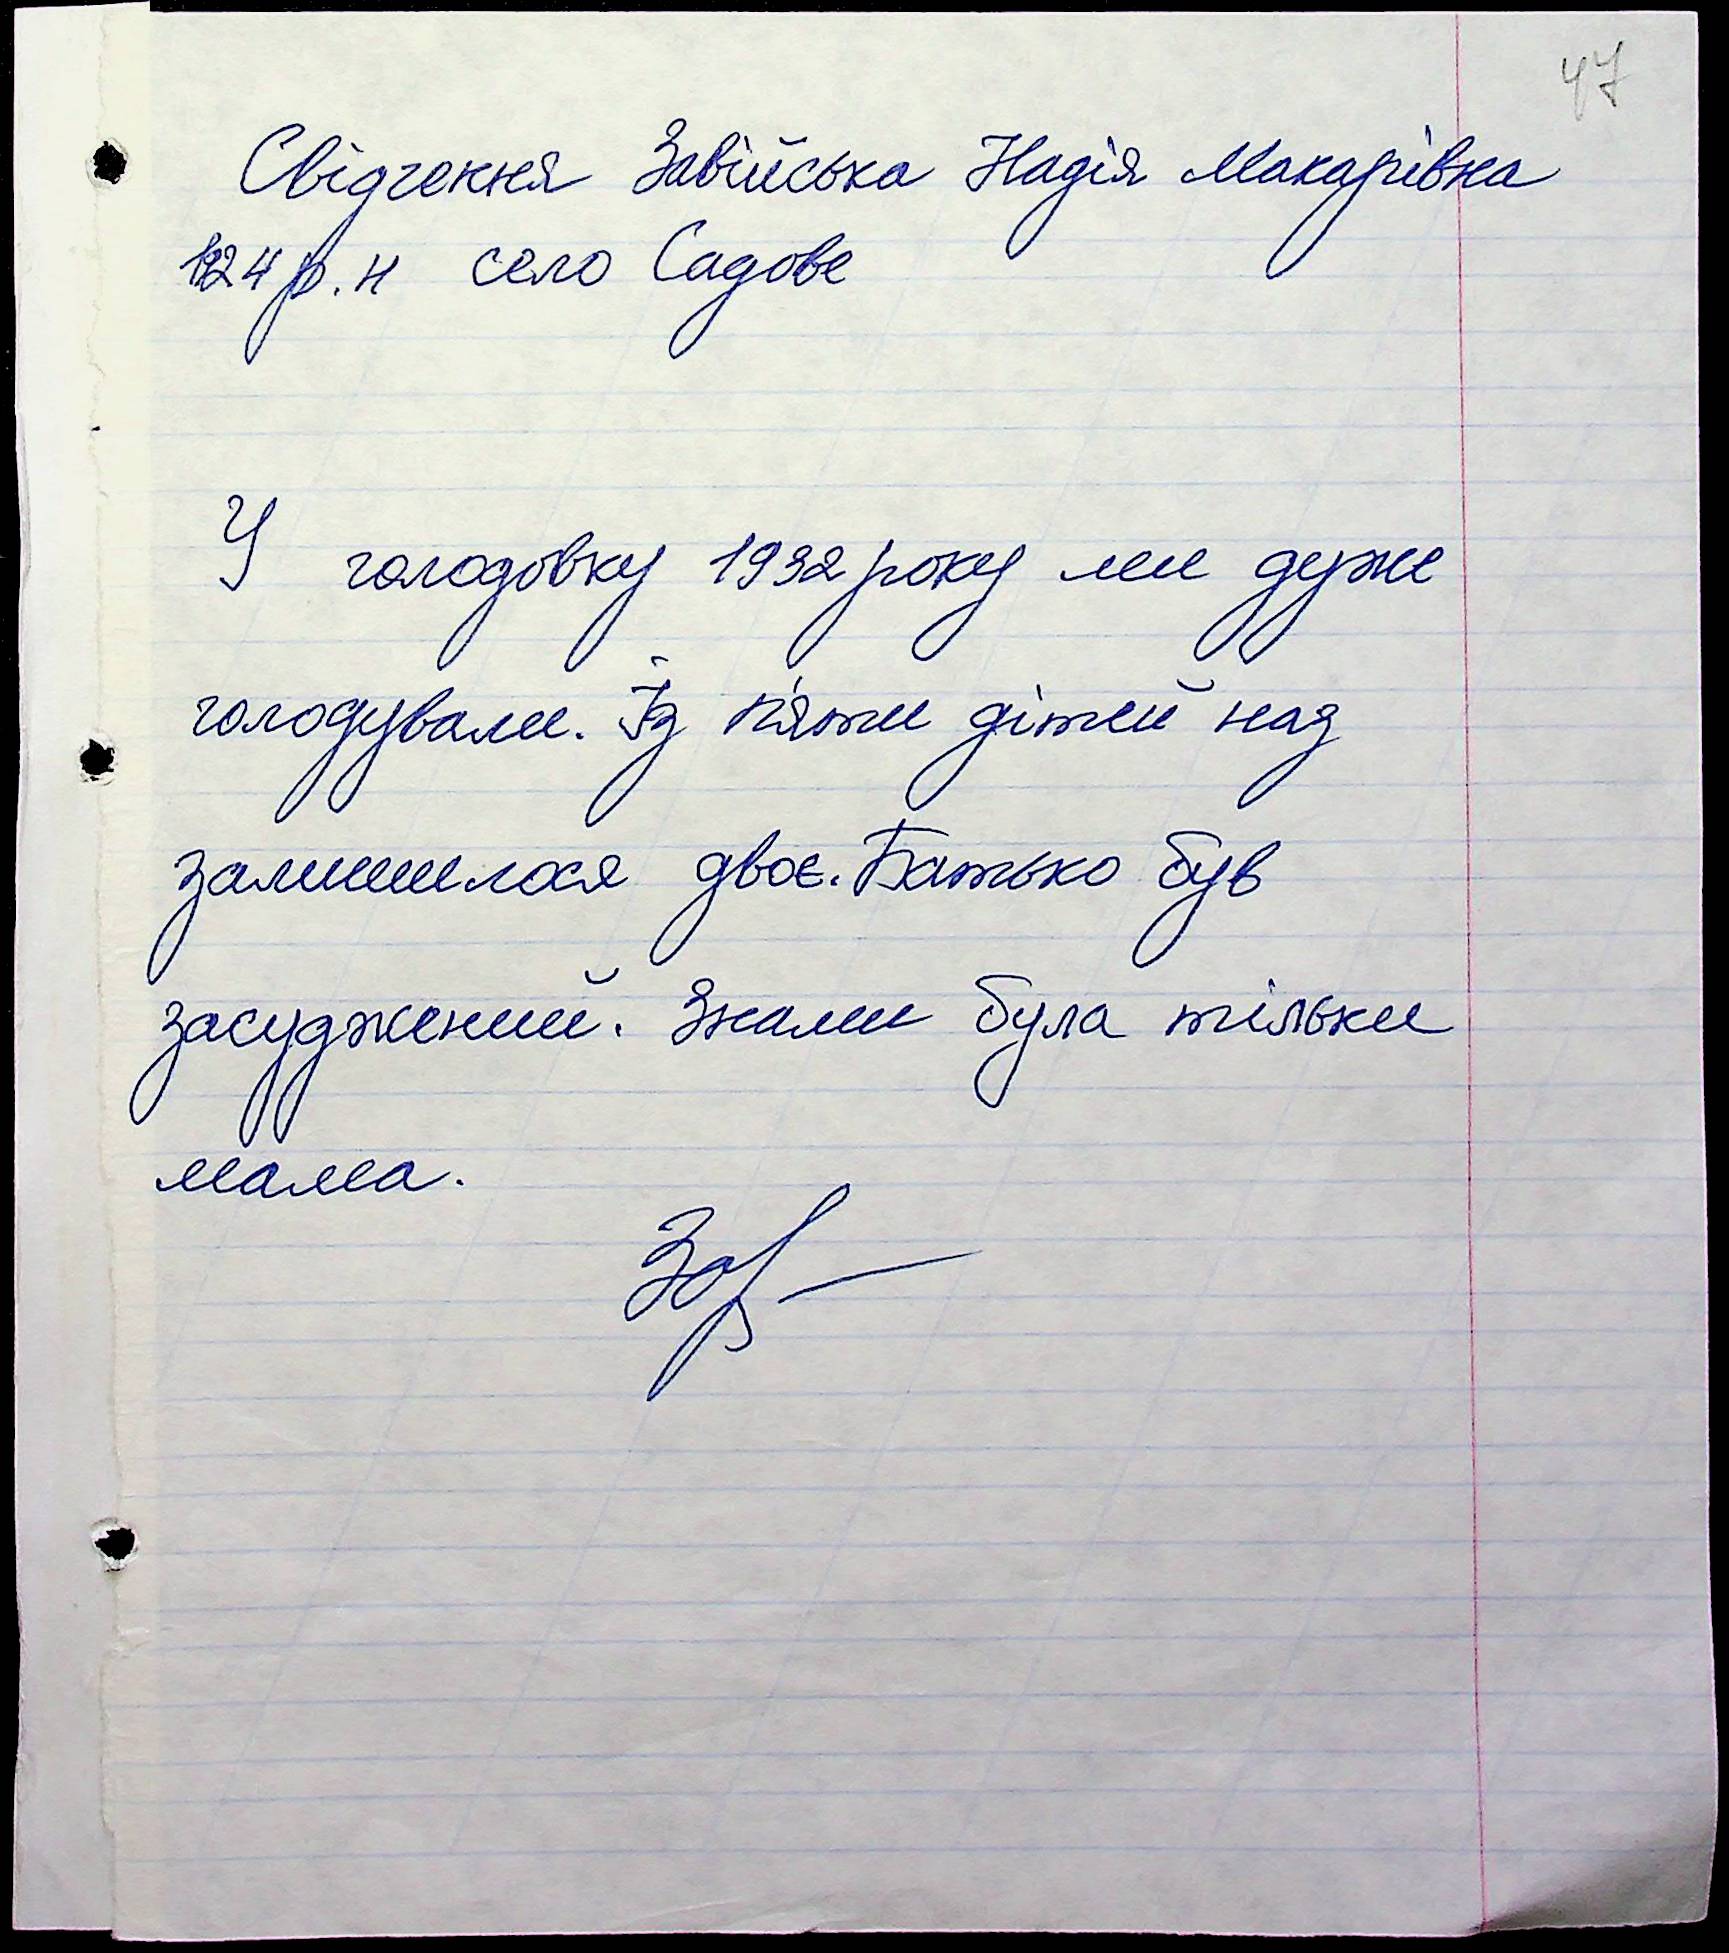 47
Свідчення Завійська Надія Макарівна
1924 р. н село Садове
У голодовку 1932 року ми дуже
голодували. Їз п'яти дітей наз
залишилося двоє. Батько був
засуджений. Знами була тільки
мама.